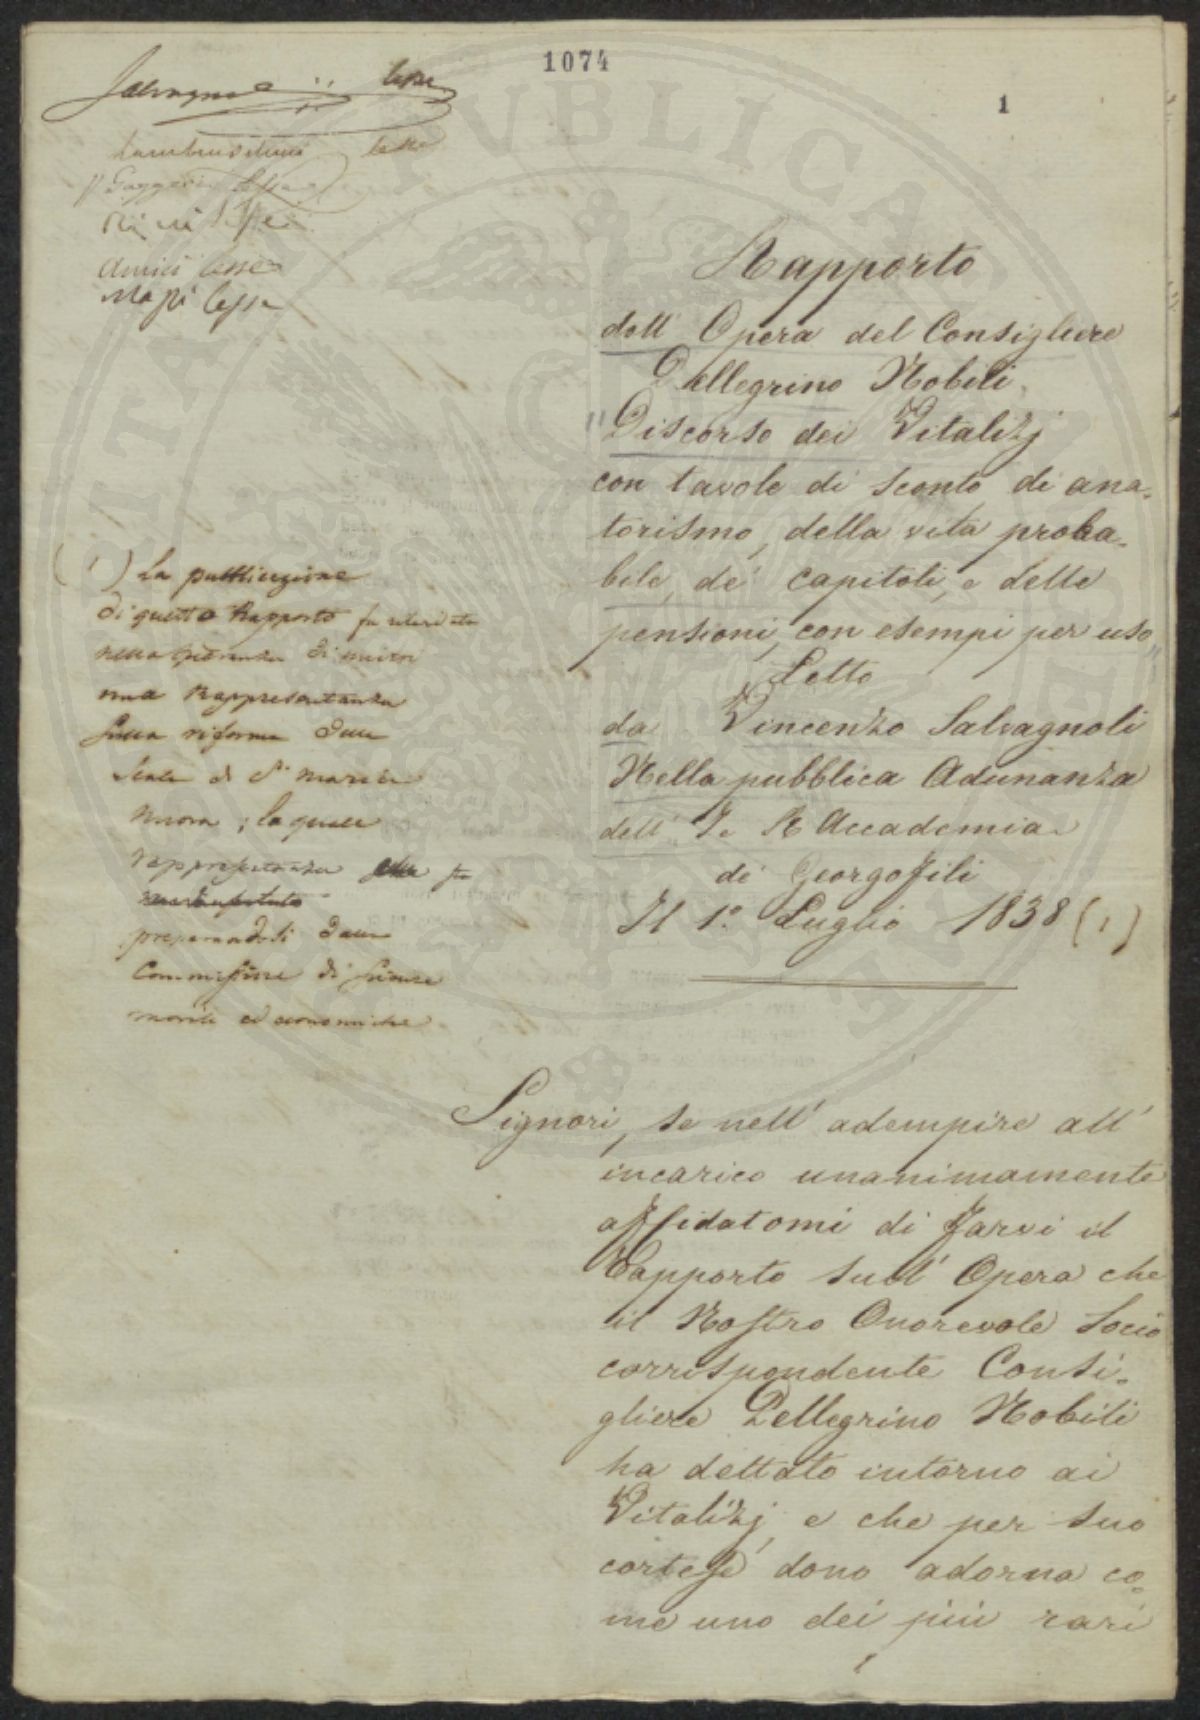 1074
1
Salvagnoli lesse
Lambruschini lesse
P Gazzeri lesse
Ridolfi
Amici lesse
Mazzi lesse
Rapporto
dell' Opera del Consigliere
Pellegrino Nobili
"Discorso dei Vitalizj
con tavole di sconto di ana-
torismo, della vita proba-
bile, de' capitali, e delle
pensioni, con esempi per uso"
Letto
da Vincenzo Salvagnoli
Nella pubblica Adunanza
dell' I. e R. Accademia
dei Georgofili
Il 1.° Luglio 1838 (1)
(1) La pubblicazione
di questo Rapporto fu ritardata
nella speranza di unirvi
una Rappresentanza
sulla riforma delle
Scale di S. Maria
nuova; la quale
rappresentanza
preparandosi dalla
Commissione di scienze
morali ed economiche
Signori, se nell' adempire all'
incarico unanimamente
affidatomi di farvi il
Rapporto sull' Opera che
il Nostro Onorevole Socio
corrispondente Consi-
gliere Pellegrino Nobili
ha dettato intorno ai
Vitalizj, e che per suo
cortese dono adorna co-
me uno dei più rari